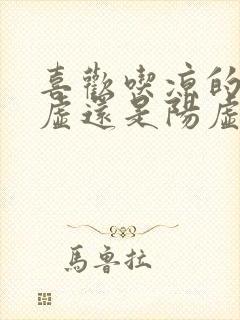 喜歡喫涼的
虛還是陽虛
馬魯拉